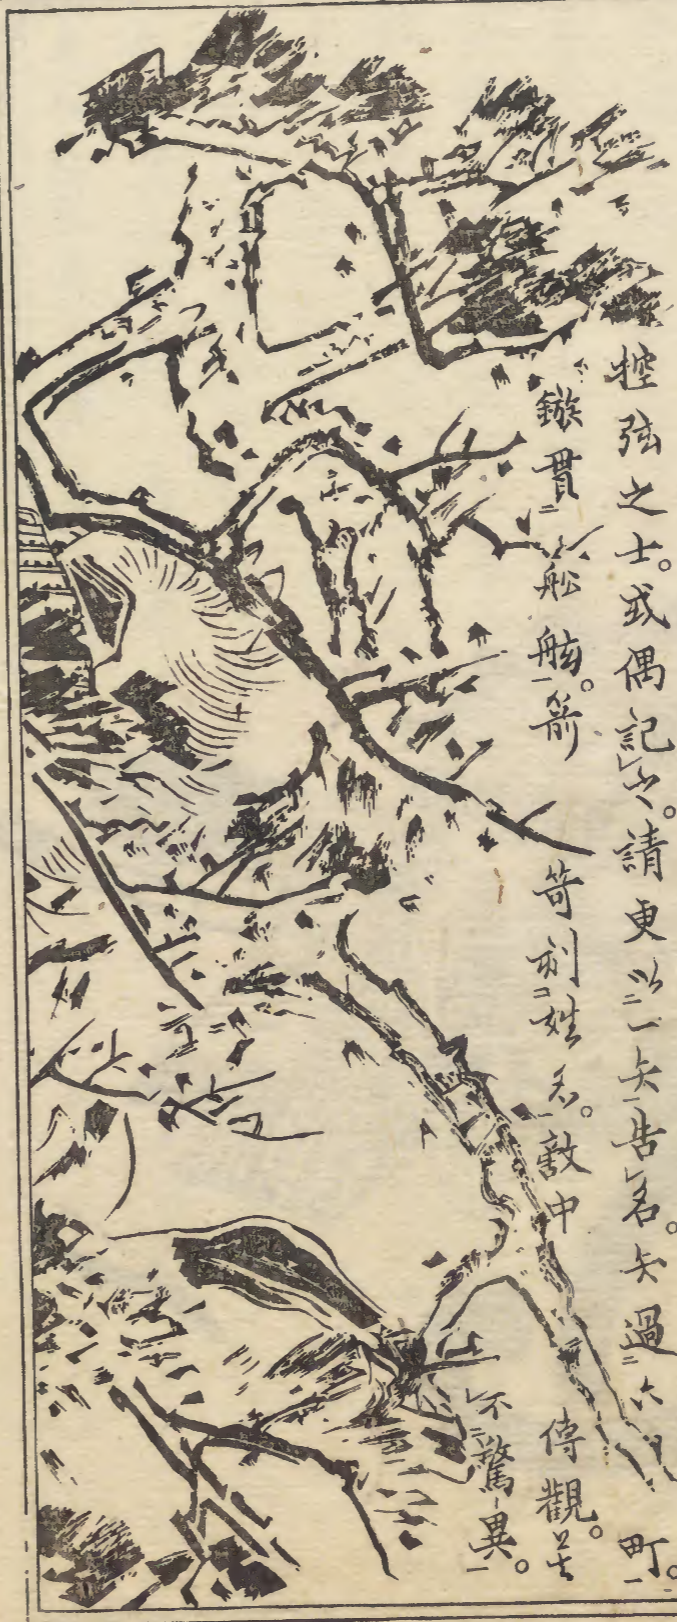 控弦之士。或偶記。請更以一矢告名。矢過六町。
鏃貫船舷。箭笴刻姓名。敵中傳觀。莫
不驚異。